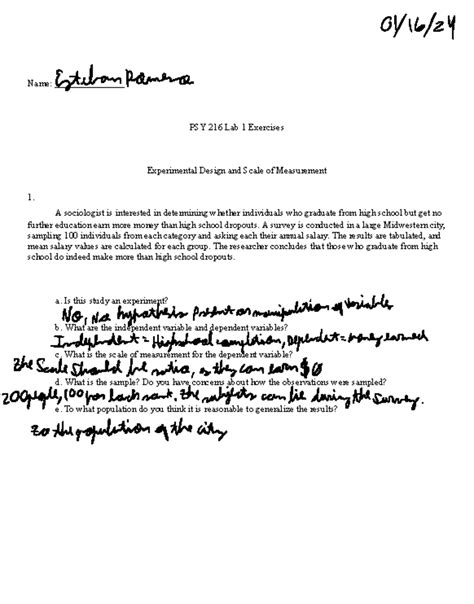 01/16/24
Name: Esteban
PSY 216 Lab 1 Exercises
Experimental Design and Scale of Measurement
1.
A sociologist is interested in determining whether individuals who graduate from high school but get no
further education earn more money than high school dropouts. A survey is conducted in a large Midwestern city,
sampling 100 individuals from each category and asking each their annual salary. The results are tabulated, and
mean salary values are calculated for each group. The researcher concludes that those who graduate from high
school do indeed make more than high school dropouts.
a. Is this study an experiment?
No, No hypothesis Present or manipulation of variable
b. What are the independent variable and dependent variables?
Independent = Highschool completion, Dependent = money earned
c. What is the scale of measurement for the dependent variable?
The Scale Should be ratio, as they can earn $0
d. What is the sample? Do you have concerns about how the observations were sampled?
200 people, 100 for each . The subjects can lie during the survey.
e. To what population do you think it is reasonable to generalize the results?
To the population of the city